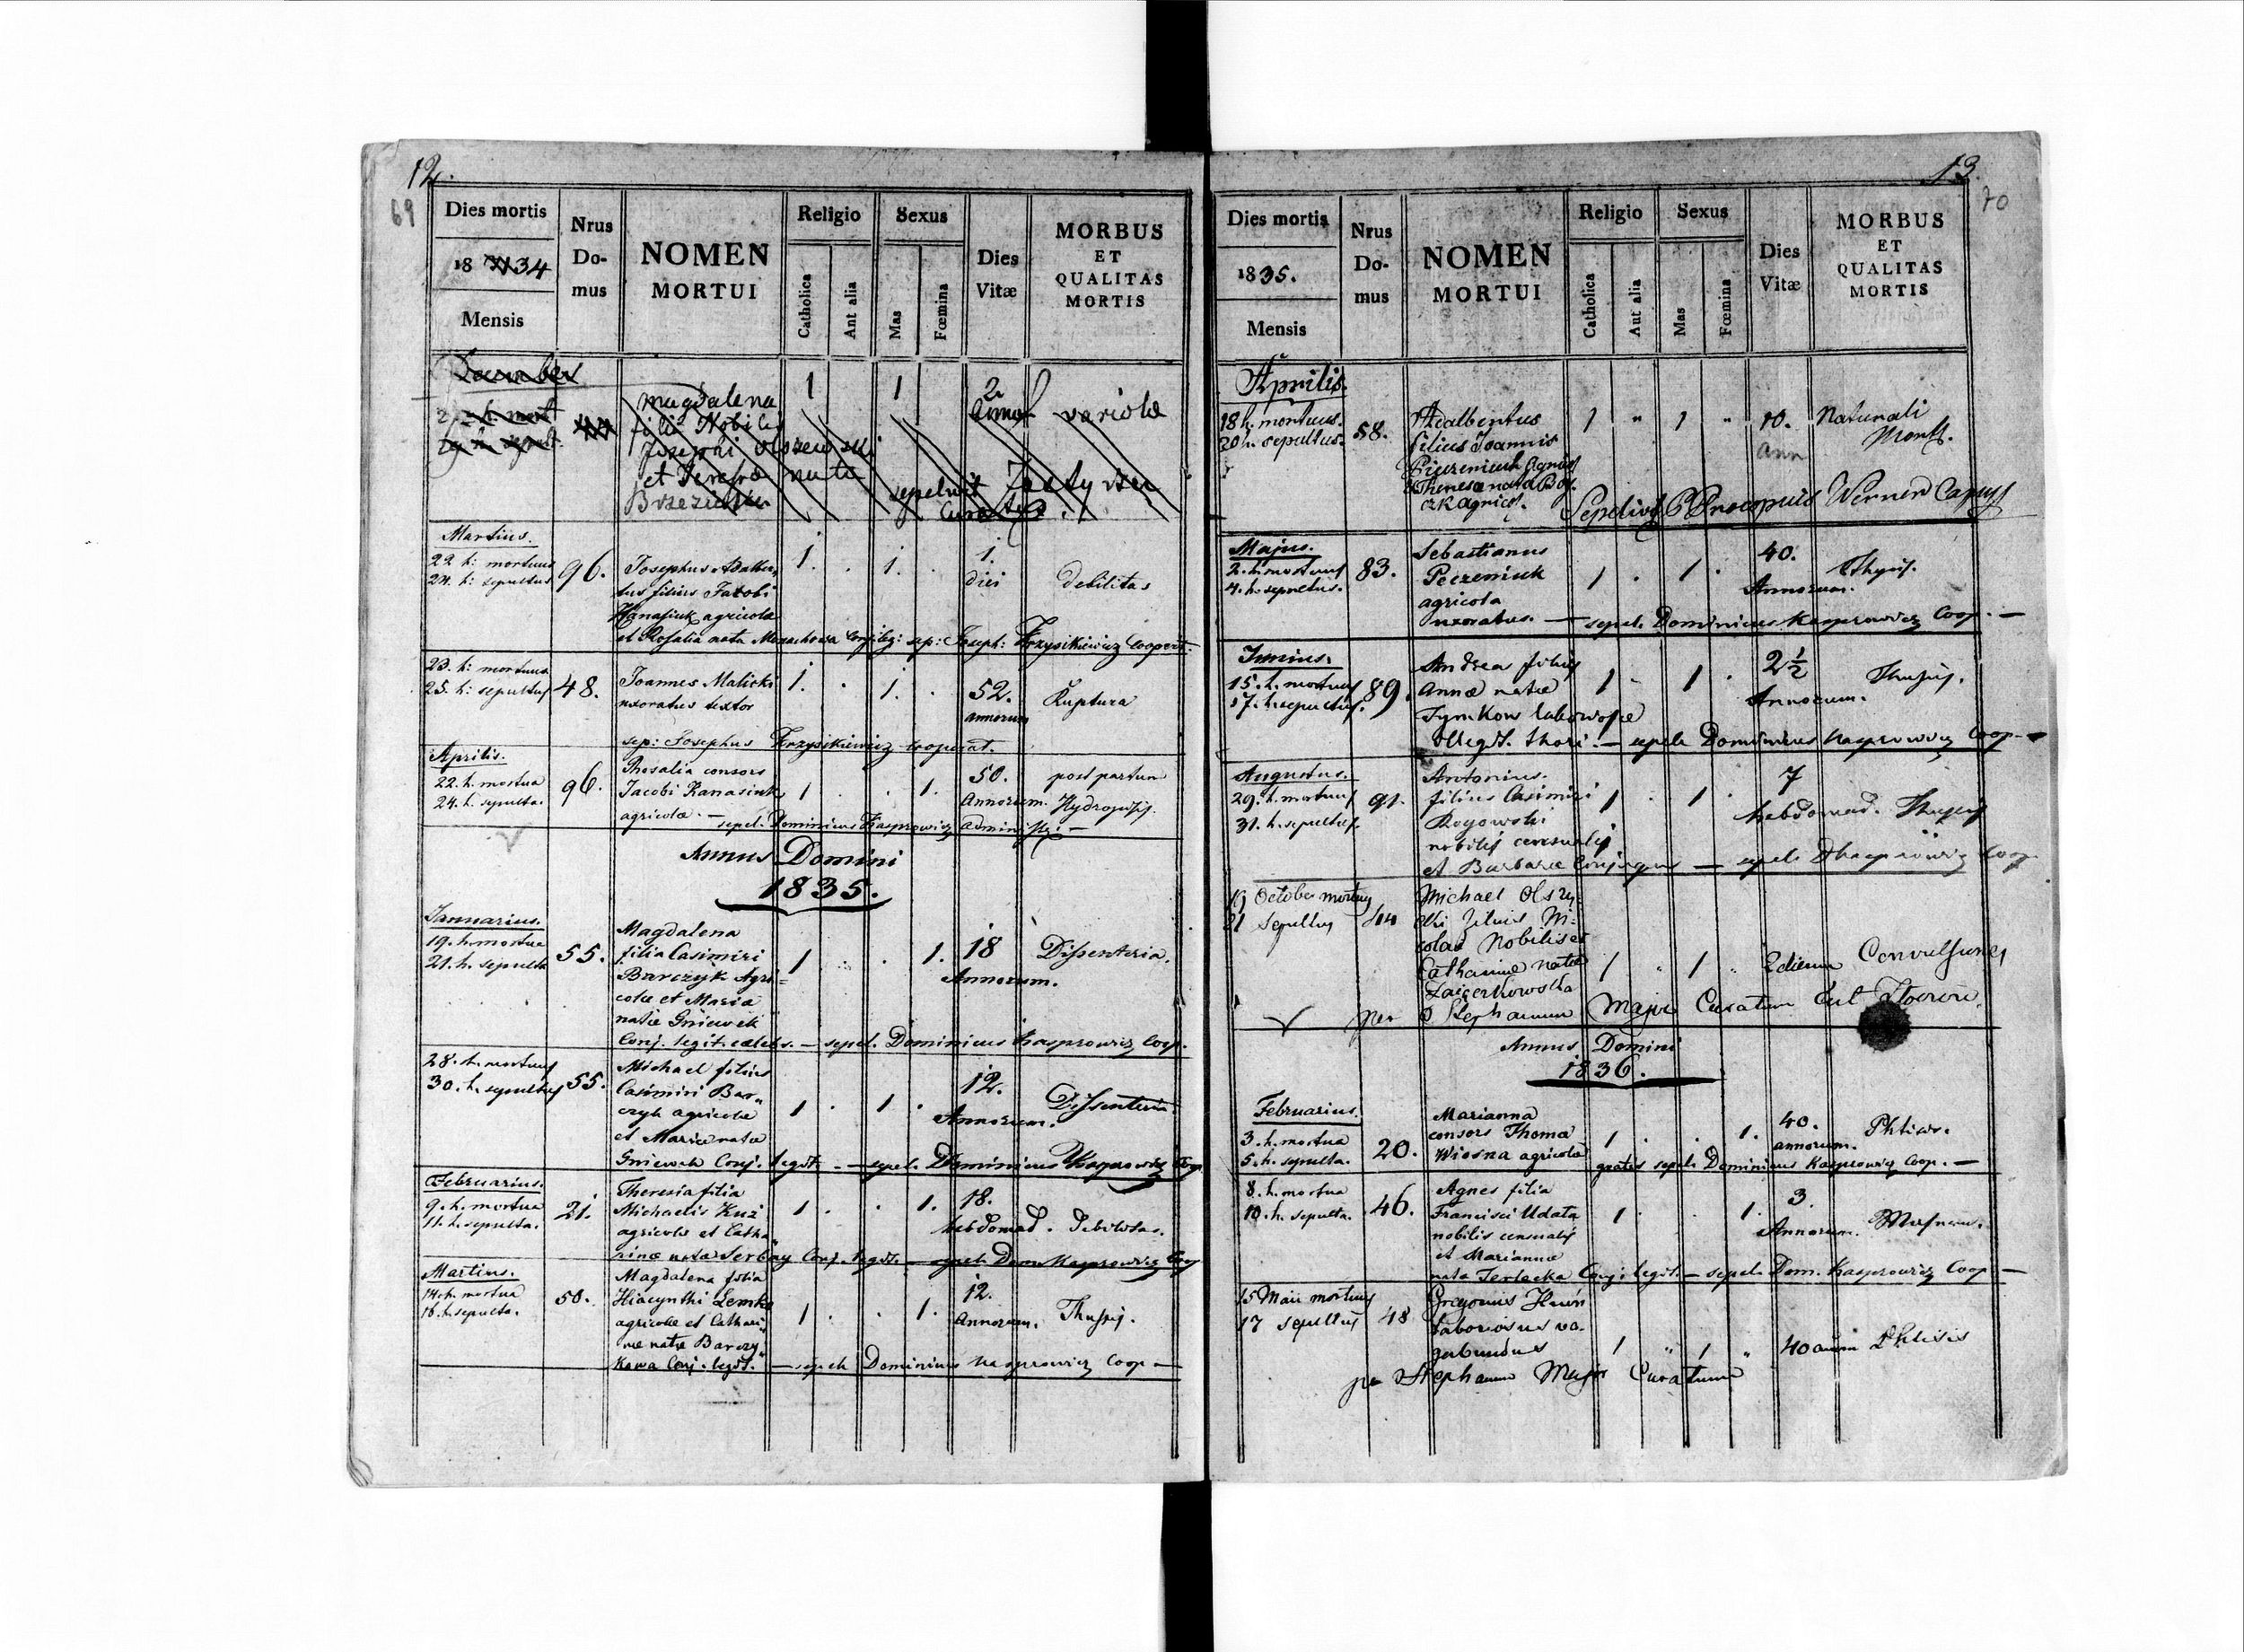 12.
69
Dies mortis
1834
Mensis
Nrus
Do-
mus
NOMEN
MORTUI
Religio
Catholica
Aut alia
Sexus
Mas
Fœmina
Dies
Vitæ
MORBUS
ET
QUALITAS
MORTIS
December
Magdalena
filia Nobilis
Josephi Olszewski
et Teresæ nata
1 1 2 variola
sepelivit
Martius.
22. h: mortuus
24. h: sepultus
96.
Josephus Adalber-
tus filius Jacobi
Hanasiuk agricola
et Rosalia nata
1. . 1. .
1.
diei
debilitas
sep: Joseph: Krzysikiewicz Cooperat.
23. h: mortuus
25. h: sepultus
48.
Joannes Malicki
uxoratus textor
1. . 1. .
52.
annorum
Ruptura
sep: Josephus Krzysikiewicz Cooperat.
Aprilis.
22. h. mortua
24. h. sepulta.
96.
Rosalia consors
Jacobi Hanasiuk
agricolæ. —
1 . . 1.
50.
Annorum.
post partum
sepel. Dominicus Kasprowicz administr: —
Annus Domini
1835.
Januarius.
19. h. mortua
21. h. sepulta
55.
Magdalena
filia Casimiri
Barczyk Agri-
colæ et Maria
natæ Gniewek
Conj. legit. cælebs. — sepel. Dominicus Kasprowicz Coop.
1 . . 1.
18
Annorum.
Dissenteria.
28. h. mortuus
30. h. sepultus
55.
Michael filius
Casimiri Bar-
czyk agricolæ
et Mariæ natæ
Gniewek Conj. legit. — sepel. Dominicus Kasprowicz Coop.
1 . 1 .
12.
Annorum.
Dissenteria
Februarius.
9. h. mortua
11. h. sepulta.
21.
Theresia filia
Michaelis Kuź
agricolæ et Catha
rinæ natæ Serbay Conj. legit. — sepel. Dom. Kasprowicz Coop
1 . . 1.
18.
hebdomad.
Debilitas.
Martius.
14. h. mortua
16. h. sepulta.
50.
Magdalena filia
Hiacynthi Lemko
agricolæ et Cathari-
næ natæ Barczy-
kowa Conj. legit. — sepel. Dominicus Kasprowicz Coop —
1 . . 1.
12.
Annorum.
Thussis.
13.
70
Dies mortis
1835.
Mensis
Nrus
Do-
mus
NOMEN
MORTUI
Religio
Catholica
Aut alia
Sexus
Mas
Fœmina
Dies
Vitæ
MORBUS
ET
QUALITAS
MORTIS
Aprilis.
18 h. mortuus.
20 h. sepultus.
58.
Adalbertus
filius Joannis
1 " 1 "
10.
ann
Naturali
Morte.
Sepelivit P. Procopius Werner Capus
Majus.
2. h. mortuus
4. h. sepultus.
83.
Sebastianus
Peczeniuk
agricola
uxoratus. — sepel. Dominicus Kasprowicz Coop. —
1 . 1 .
40.
Annorum.
Junius.
15. h. mortuus
17. h. sepultus.
89.
Andrea filius
Annæ natæ
Tymkow
Illegit. thori. — sepel. Dominicus Kasprowicz Coop. —
1 - 1 .
2½
Annorum.
Thussis.
Augustus.
29. h. mortuus
31. h. sepultus.
91.
Antonius.
filius Casimiri
Rogowski
nobilis censualis
et Barbaræ Conjugum — sepel. DKasprowicz Coop
1 . 1 .
7
hebdomad.
Thussis
19 October mortuus
21 sepultus
Michael Olszy-
ski filius Ni-
colai Nobilis et
Catharinæ natæ
per Stephanum Major Curatum
1 " 1 "
2 dierum
Convulsiones
Annus Domini
1836.
Februarius.
3. h. mortua
5. h. sepulta.
20.
Marianna
consors Thomæ
Wiosna agricolæ
1 . . 1.
40.
annorum.
Phtisis.
gratis sepel. Dominicus Kasprowicz Coop. —
8. h. mortua
10. h. sepulta.
46.
Agnes filia
Francisci Udata
nobilis censualis
et Mariannæ
nata Terlecka Conj: legit. — sepel. Dom. Kasprowicz Coop —
1 . . 1.
3.
Annorum.
15 Maii mortuus
17 sepultus
48
Gregorius
Laboriosus va-
gabundus
1 " 1 "
40 Phtisis
per Stephanum Major Curatum